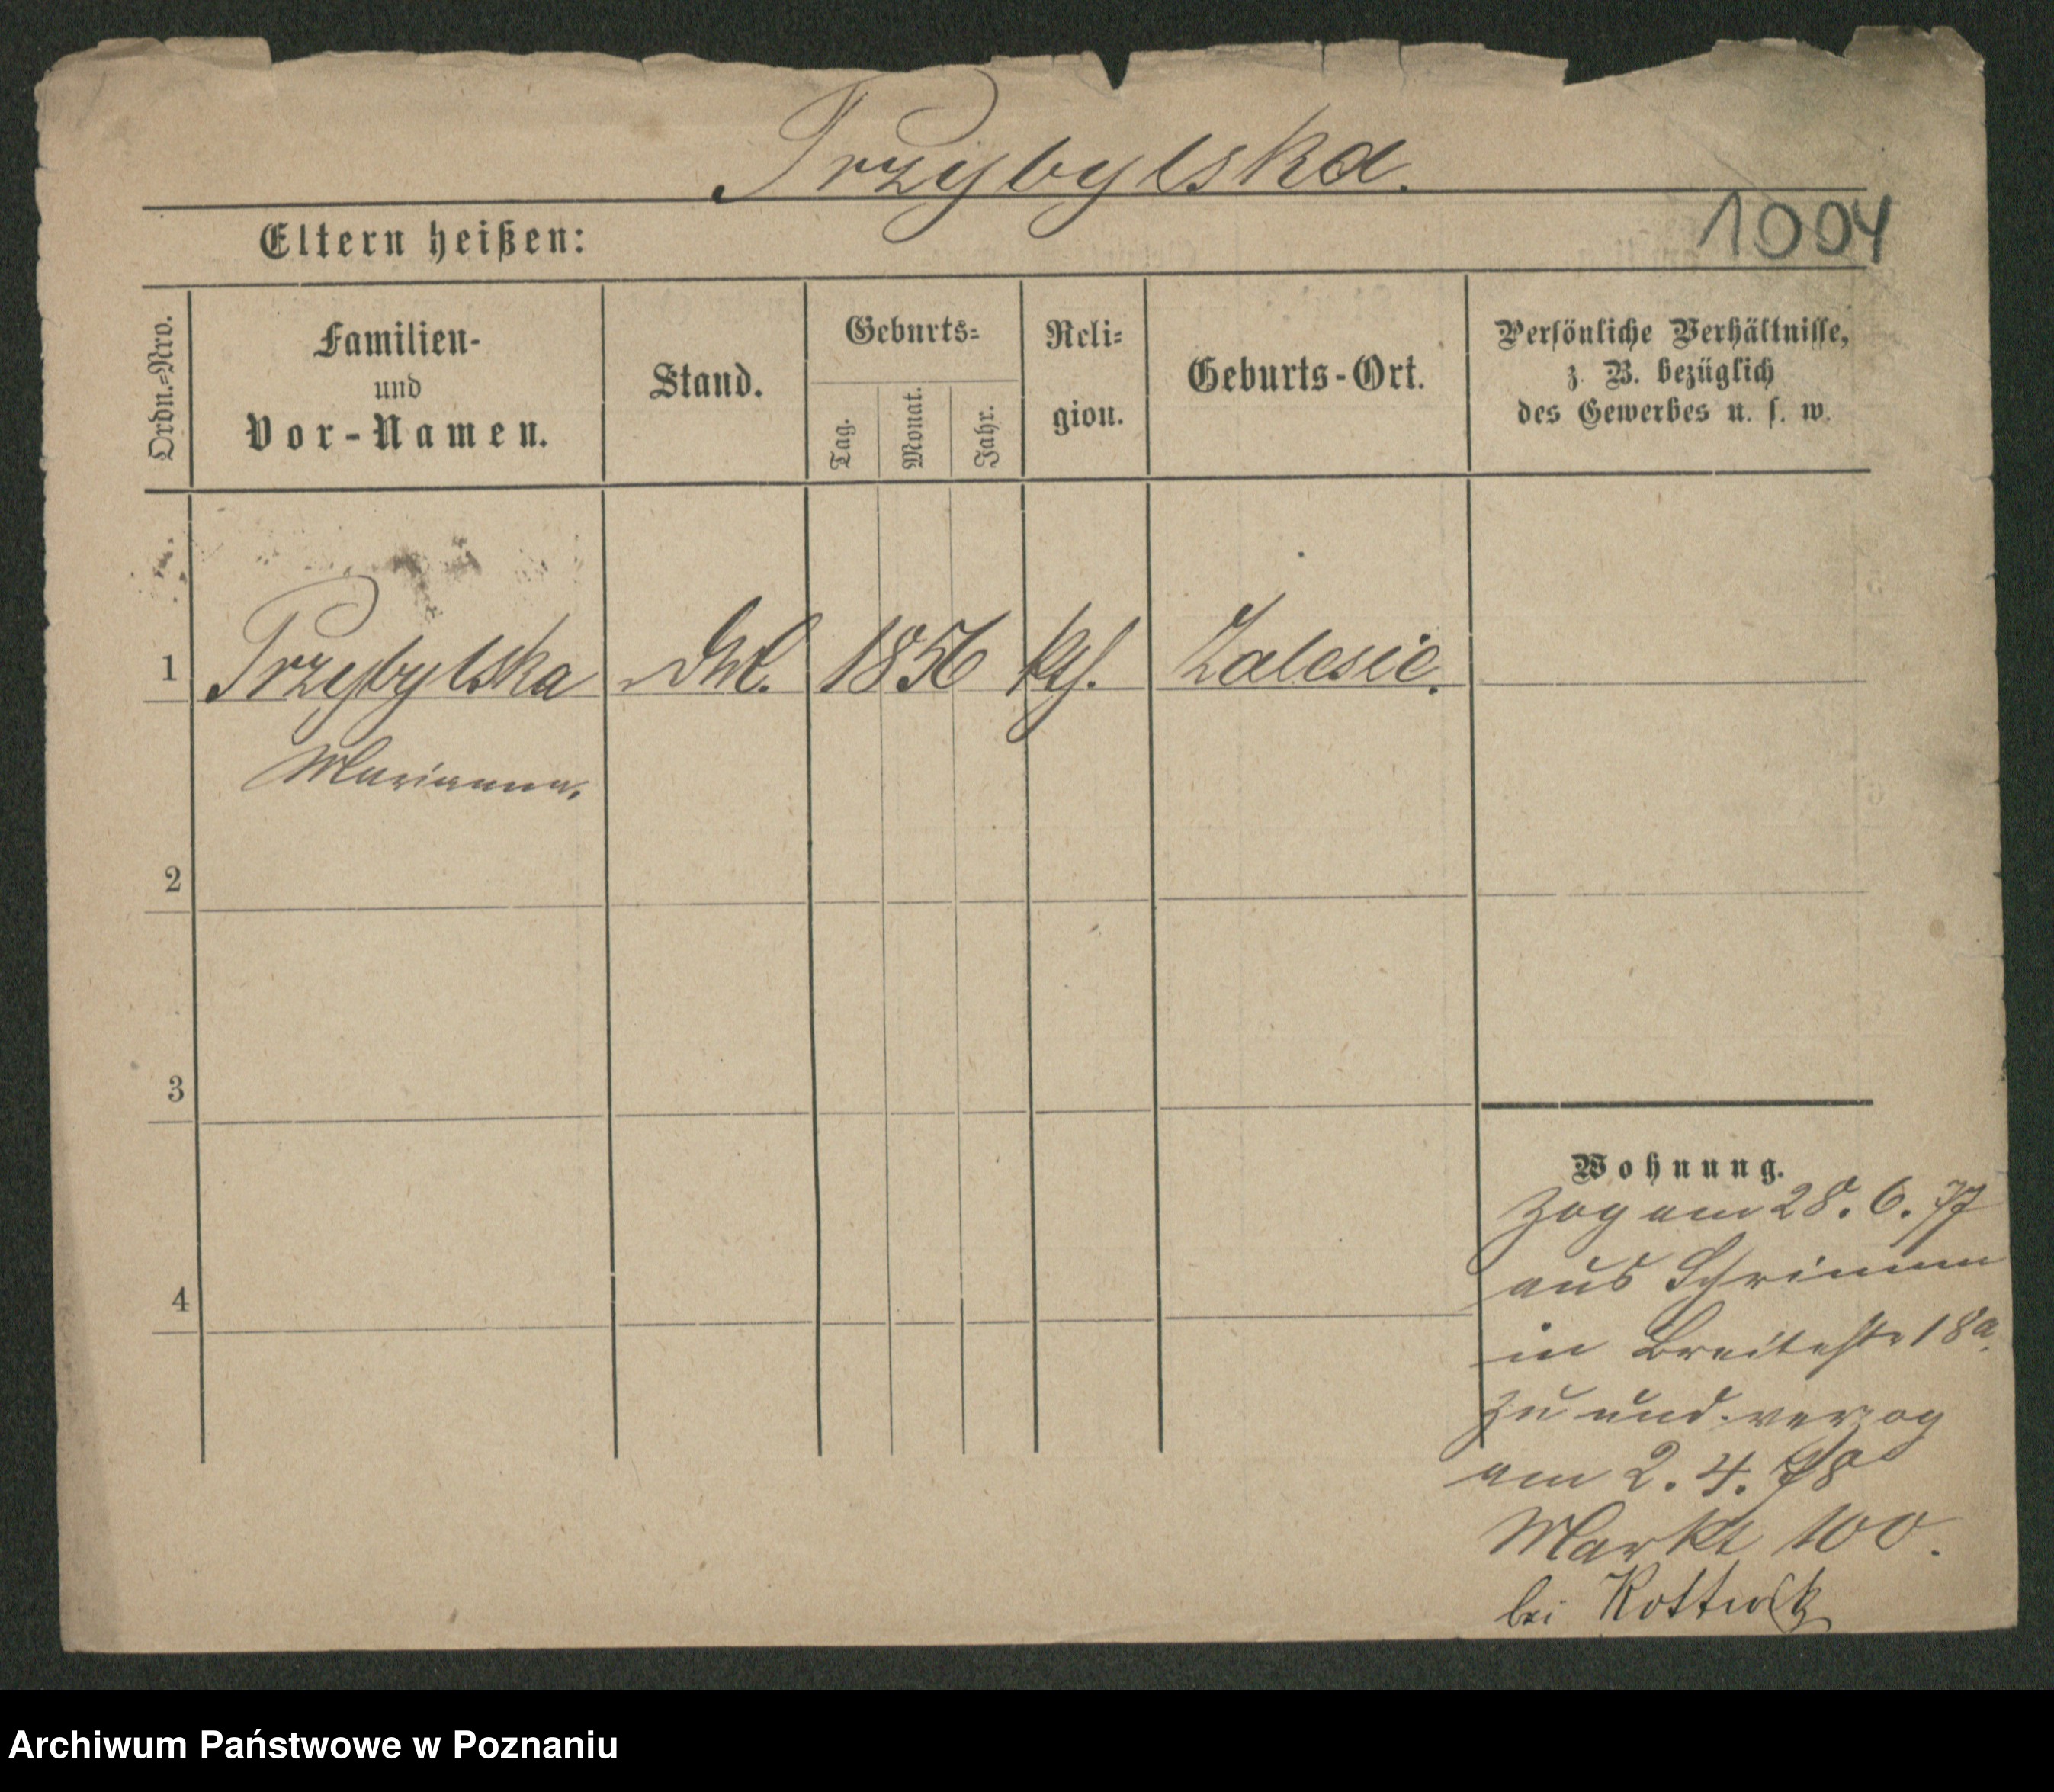 Przybylska.
1004
Eltern heißen:
Ordn.-Nro.
Familien-
und
Vor-Namen.
Stand.
Geburts-
Tag.
Monat.
Jahr.
Reli-
gion.
Geburts-Ort.
Persönliche Verhältnisse,
z. B. bezüglich
des Gewerbes u. s. w.
1 Przybylska 1856 kth. Zalesie.
Marianna.
2
3
4
Wohnung.
Zog am 28. 6. 77
aus Schrimm
in Breitestr 18a.
zu und verzog
am 2. 4. 78
Markt 100.
bei
Archiwum Państwowe w Poznaniu